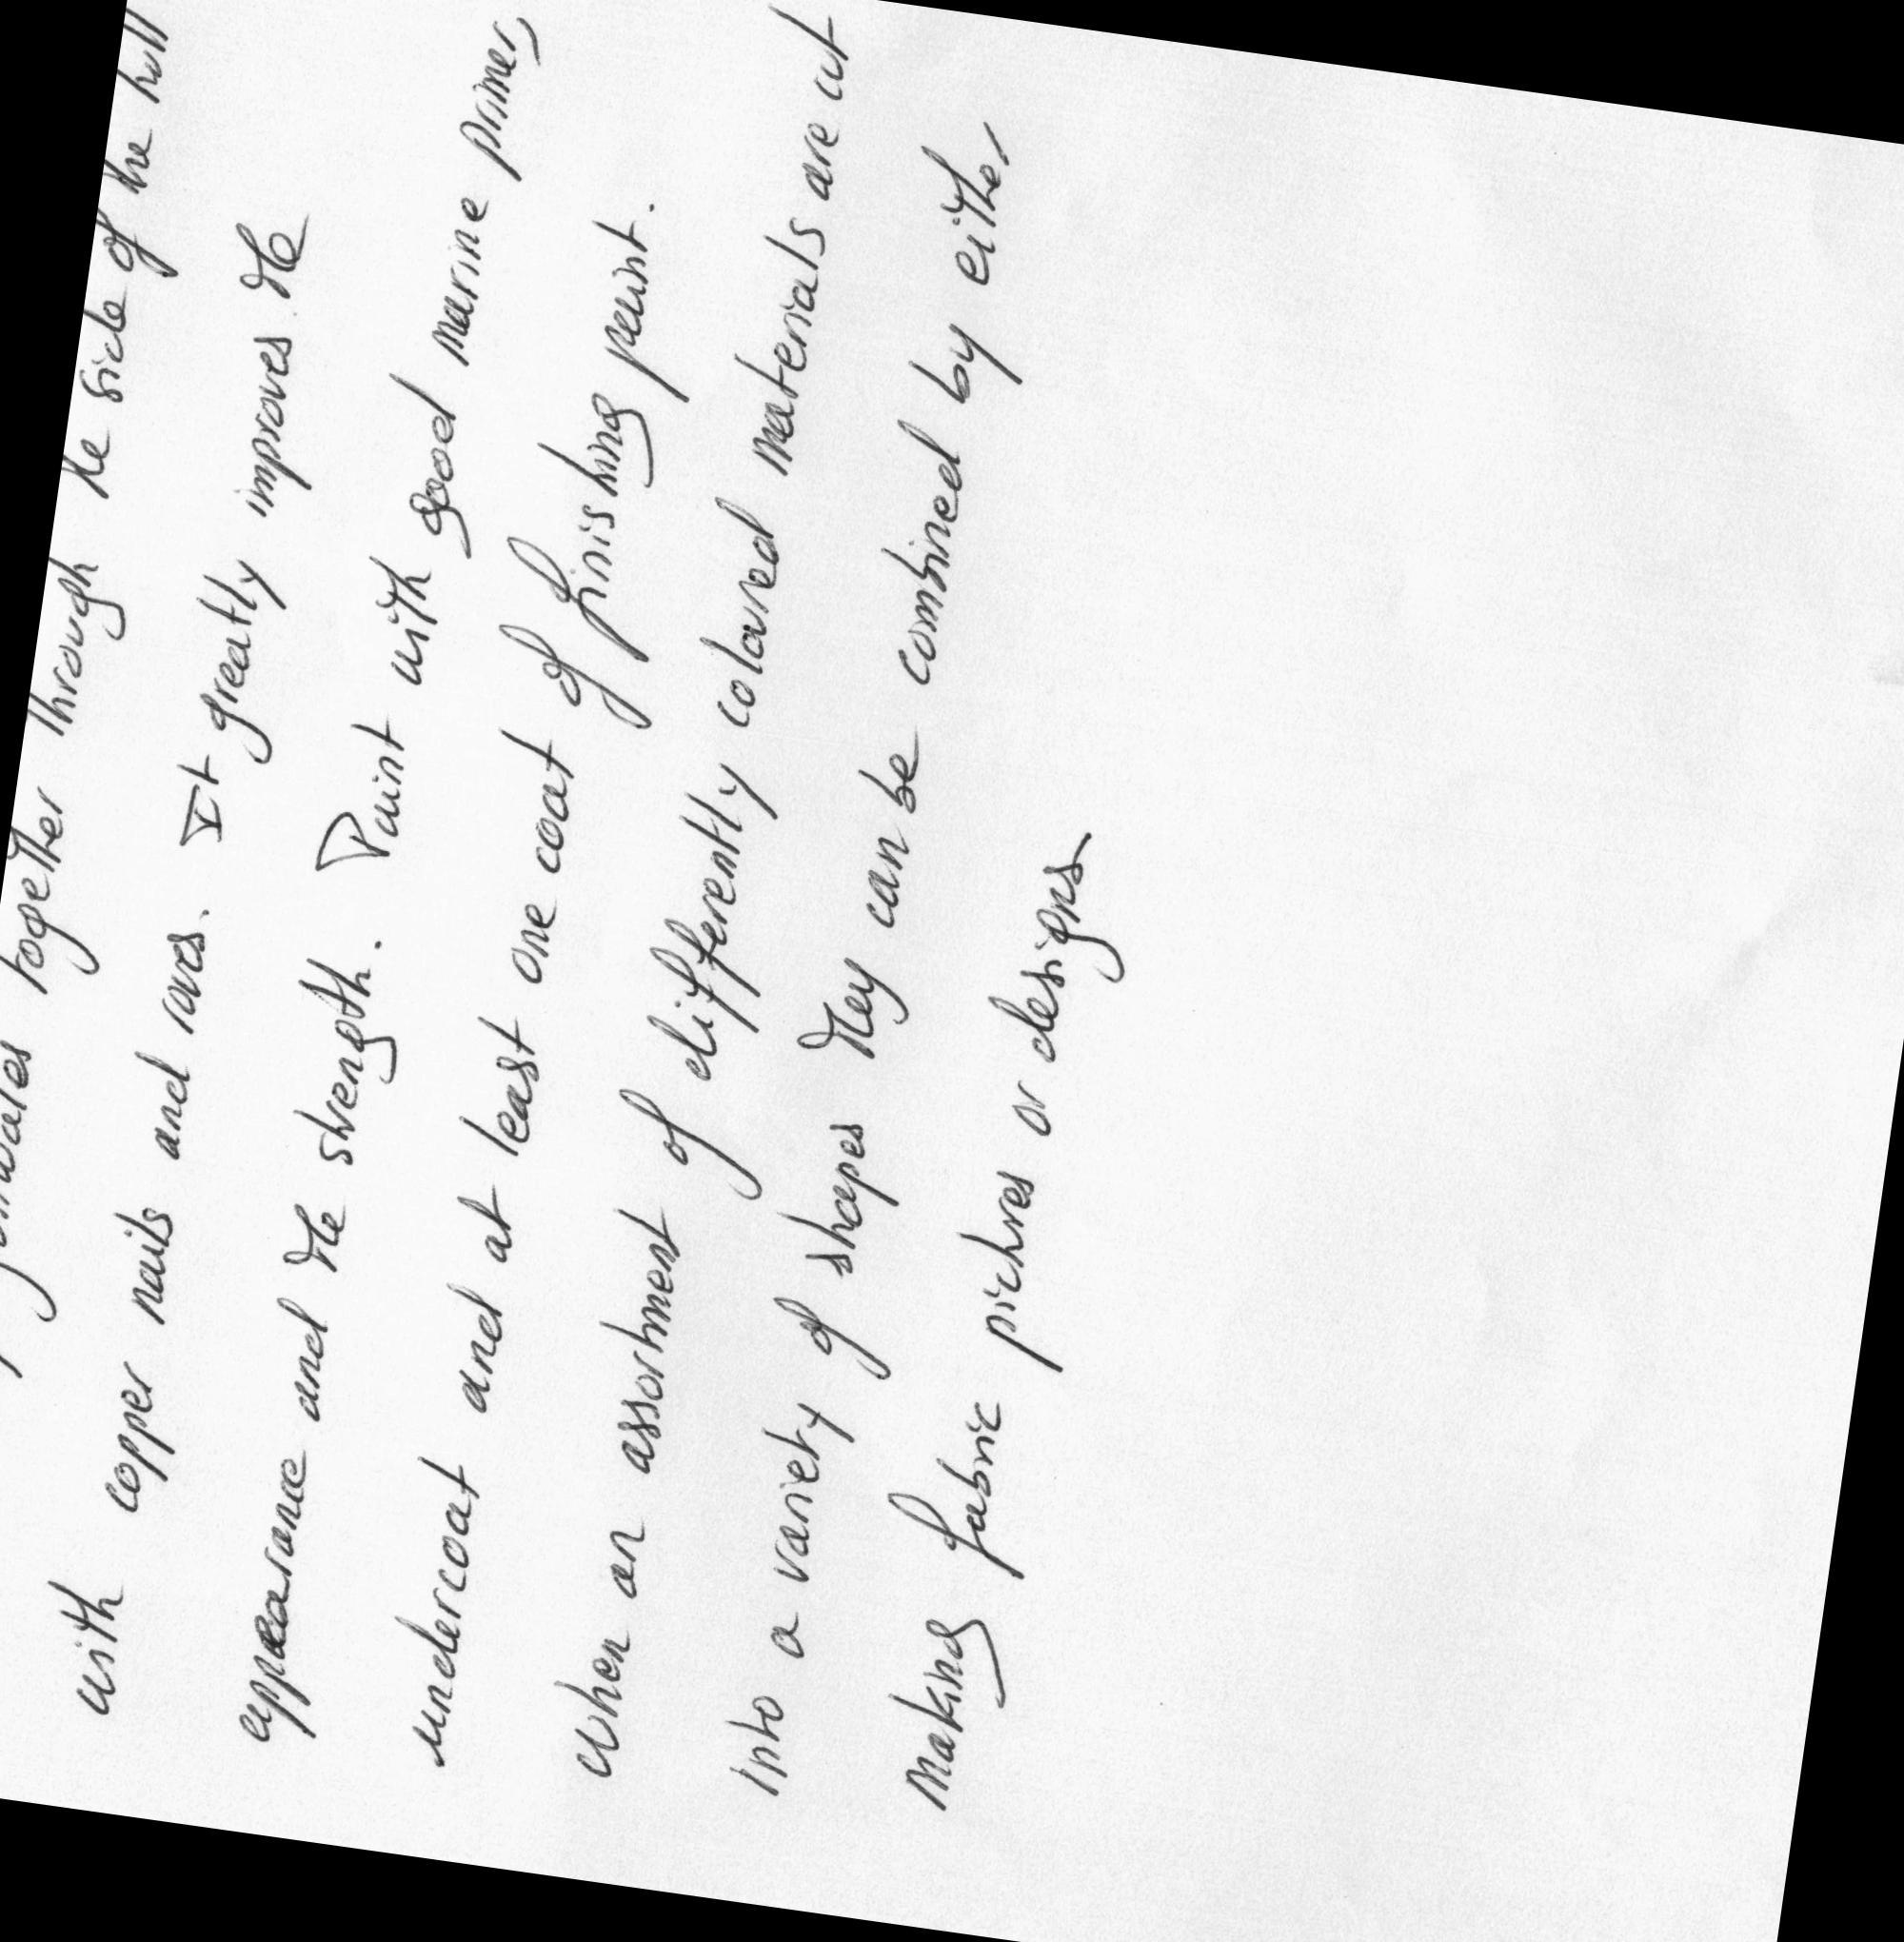 gunwales together through the side of the hull
with copper nails and roves. It greatly improves the
appearance and the strength. Paint with good marine primer,
undercoat and at least one coat of finishing paint.
When an assortment of differently coloured materials are cut
into a variety of shapes they can be combined by either
making fabric pictures or designs